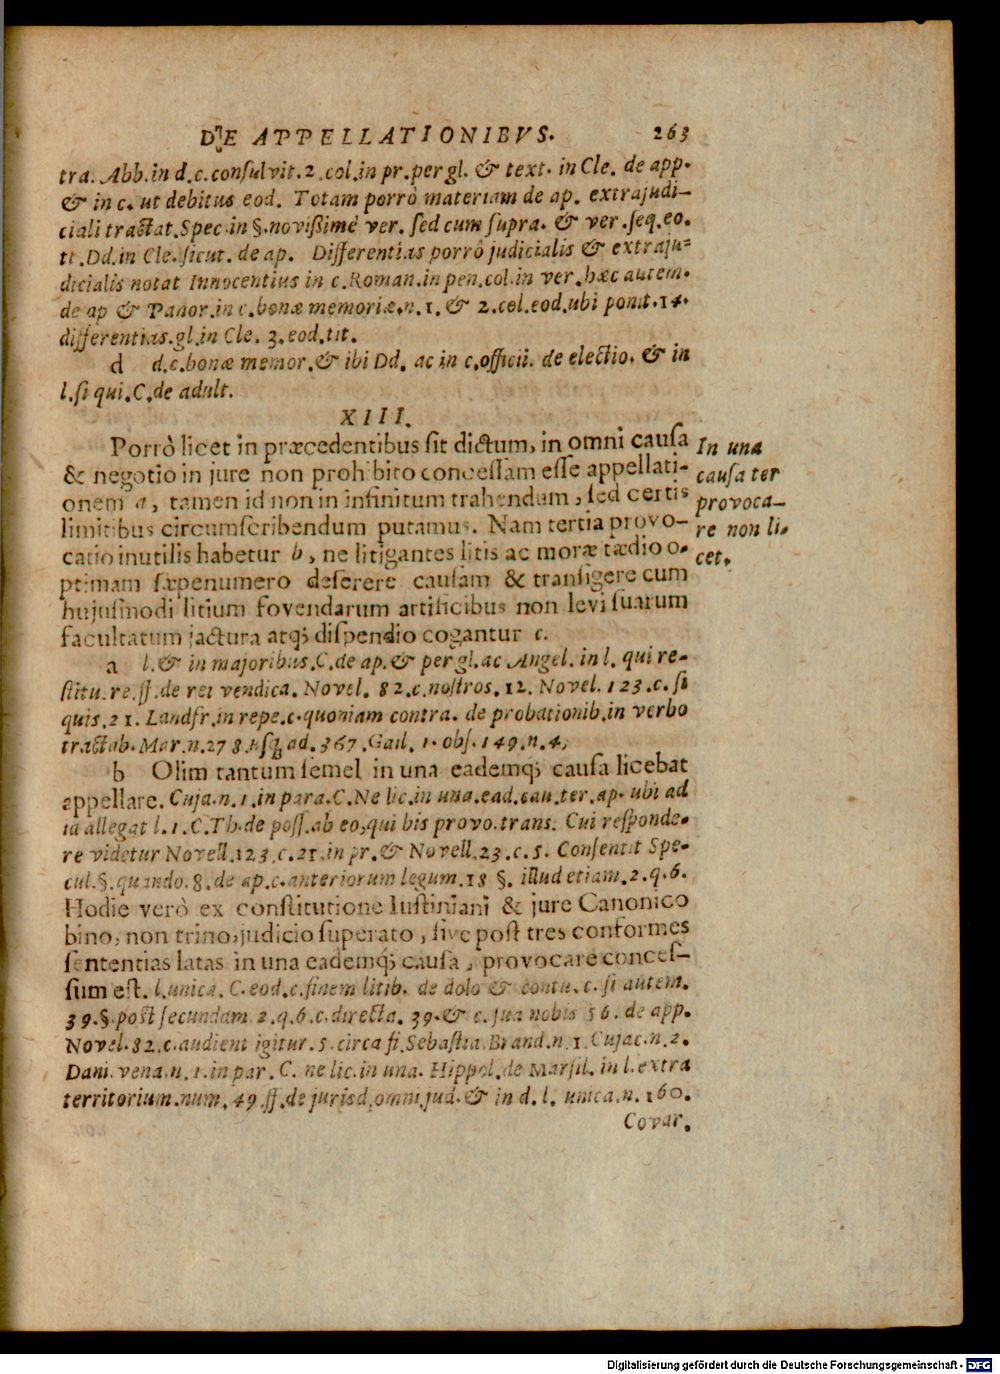 DE APPELLATIONIBVS. 263
tra. Abb. in d. c. consulvit. 2. col. in pr. per gl. & text. in Cle. de app.
& in c. ut debitus eod. Totam porrò materiam de ap. extrajudi-
ciali tractat. Spec. in §. novißimè ver. sed cum supra. & ver. seq. eo.
tt. Dd. in Cle. sicut. de ap. Differentias porrò judicialis & extraju-
dicialis notat Innocentius in c. Roman. in pen. col. in ver. hæc autem.
de ap & Panor. in c. bonæ memoriæ. n. 1. & 2. col. eod. ubi ponit. 14.
differentias. gl. in Cle. 3. eod. tit.
d d. c. bonæ memor. & ibi Dd. ac in c. officii. de electio. & in
l. si qui. C. de adult.
XIII.
Porrò licet in præcedentibus sit dictum, in omni causa
& negotio in jure non prohibito concessam esse appellati-
onem a, tamen id non in infinitum trahendum, sed certis
limitibus circumscribendum putamus. Nam tertia provo-
catio inutilis habetur b, ne litigantes litis ac moræ tædio o-
ptimam sæpenumero deserere causam & transigere cum
hujusmodi litium fovendarum artificibus non levi suarum
facultatum jactura atq; dispendio cogantur c.
In una
causa ter
provoca-
re non li-
cet.
a l. & in majoribus. C. de ap. & per gl. ac Angel. in l. qui re-
stitu. re. ff. de rei vendica. Novel. 82. c. nostros. 12. Novel. 123. c. si
quis. 21. Landfr. in repe. c. quoniam contra. de probationib. in verbo
tractab. Mar. n. 278. usq ad. 367. Gail. 1. obs. 149. n. 4,
b Olim tantum semel in una eademq; causa licebat
appellare. Cuja. n. 1. in para. C. Ne lic. in una. ead. cau. ter. ap. ubi ad
ia allegat l. 1. C. Th. de poss. ab eo, qui bis provo. trans. Cui responde-
re videtur Novell. 123. c. 21. in pr. & Novell. 23. c. 5. Consentit Spe-
cul. §. quando. 8. de ap. c. anteriorum legum. 18 §. illud etiam. 2. q. 6.
Hodie verò ex constitutione Iustiniani & jure Canonico
bino, non trino, judicio superato, sive post tres conformes
sententias latas in una eademq; causa, provocare conces-
sum est. l. unica. C. eod. c. finem litib. de dolo & contu. c. si autem.
39. §. post secundam. 2. q. 6. c. directa. 39. & c. sua nobis 56. de app.
Novel. 82. c. audient igitur. 5. circa fi. Sebastia. Brand. n. 1. Cujac. n. 2.
Dani. vena. n. 1. in par. C. ne lic. in una. Hippol. de Marsil. in l. extra
territorium. num. 49. ff. de jurisd. omni. jud. & in d. l. unica. n. 160.
Covar.
Digitalisierung gefördert durch die Deutsche Forschungsgemeinschaft - DFG